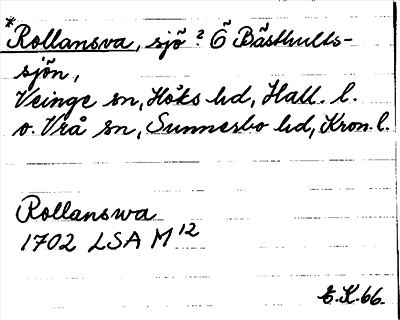 *Rollansva, sjö? Ö Bästhults-
sjön,
Veinge sn, Höks hd, Hall. l.
o. Vrå sn, Sunnerbo hd, Kron. l.
Rollanswa
1702 LSA M 12
E.K.66.